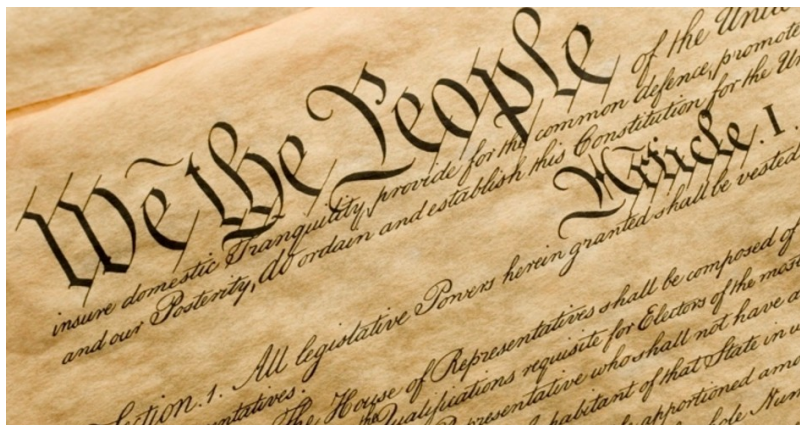 We the People of the Unite
insure domestic Tranquility, provide for the common defence, promote
and our Posterity, do ordain and establish this Constitution for the Un
Article. I.
Section. 1. All legislative Powers herein granted shall be vested
ntatives.
The House of Representatives shall be composed of
the Qualifications requisite for Electors of the most
Representative who shall not have a
habitant of that State in w
apportioned amo
hole Num